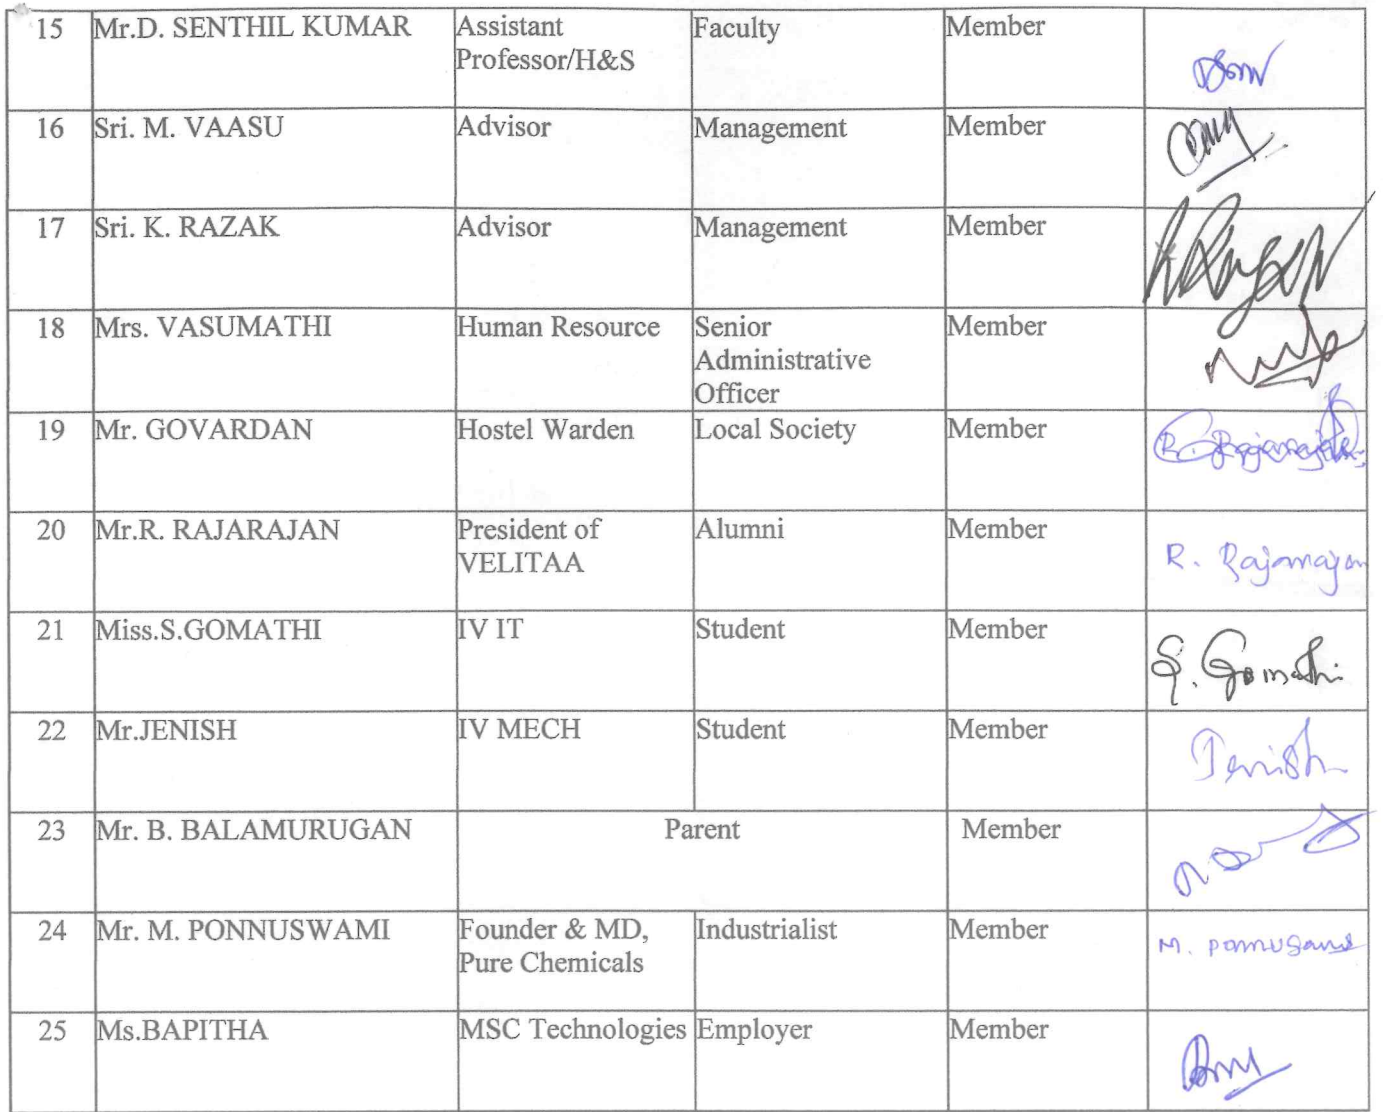 15 Mr.D. SENTHIL KUMAR Assistant Faculty Member
Professor/H&S
16 Sri. M. VAASU Advisor Management Member
17 Sri. K. RAZAK Advisor Management Member
18 Mrs. VASUMATHI Human Resource Senior Member
Administrative
Officer
19 Mr. GOVARDAN Hostel Warden Local Society Member
20 Mr.R. RAJARAJAN President of Alumni Member
VELITAA
R. Rajarajan
21 Miss.S.GOMATHI IV IT Student Member
S. Gomathi
22 Mr.JENISH IV MECH Student Member
Jenish
23 Mr. B. BALAMURUGAN Parent Member
24 Mr. M. PONNUSWAMI Founder & MD, Industrialist Member
Pure Chemicals
25 Ms.BAPITHA MSC Technologies Employer Member